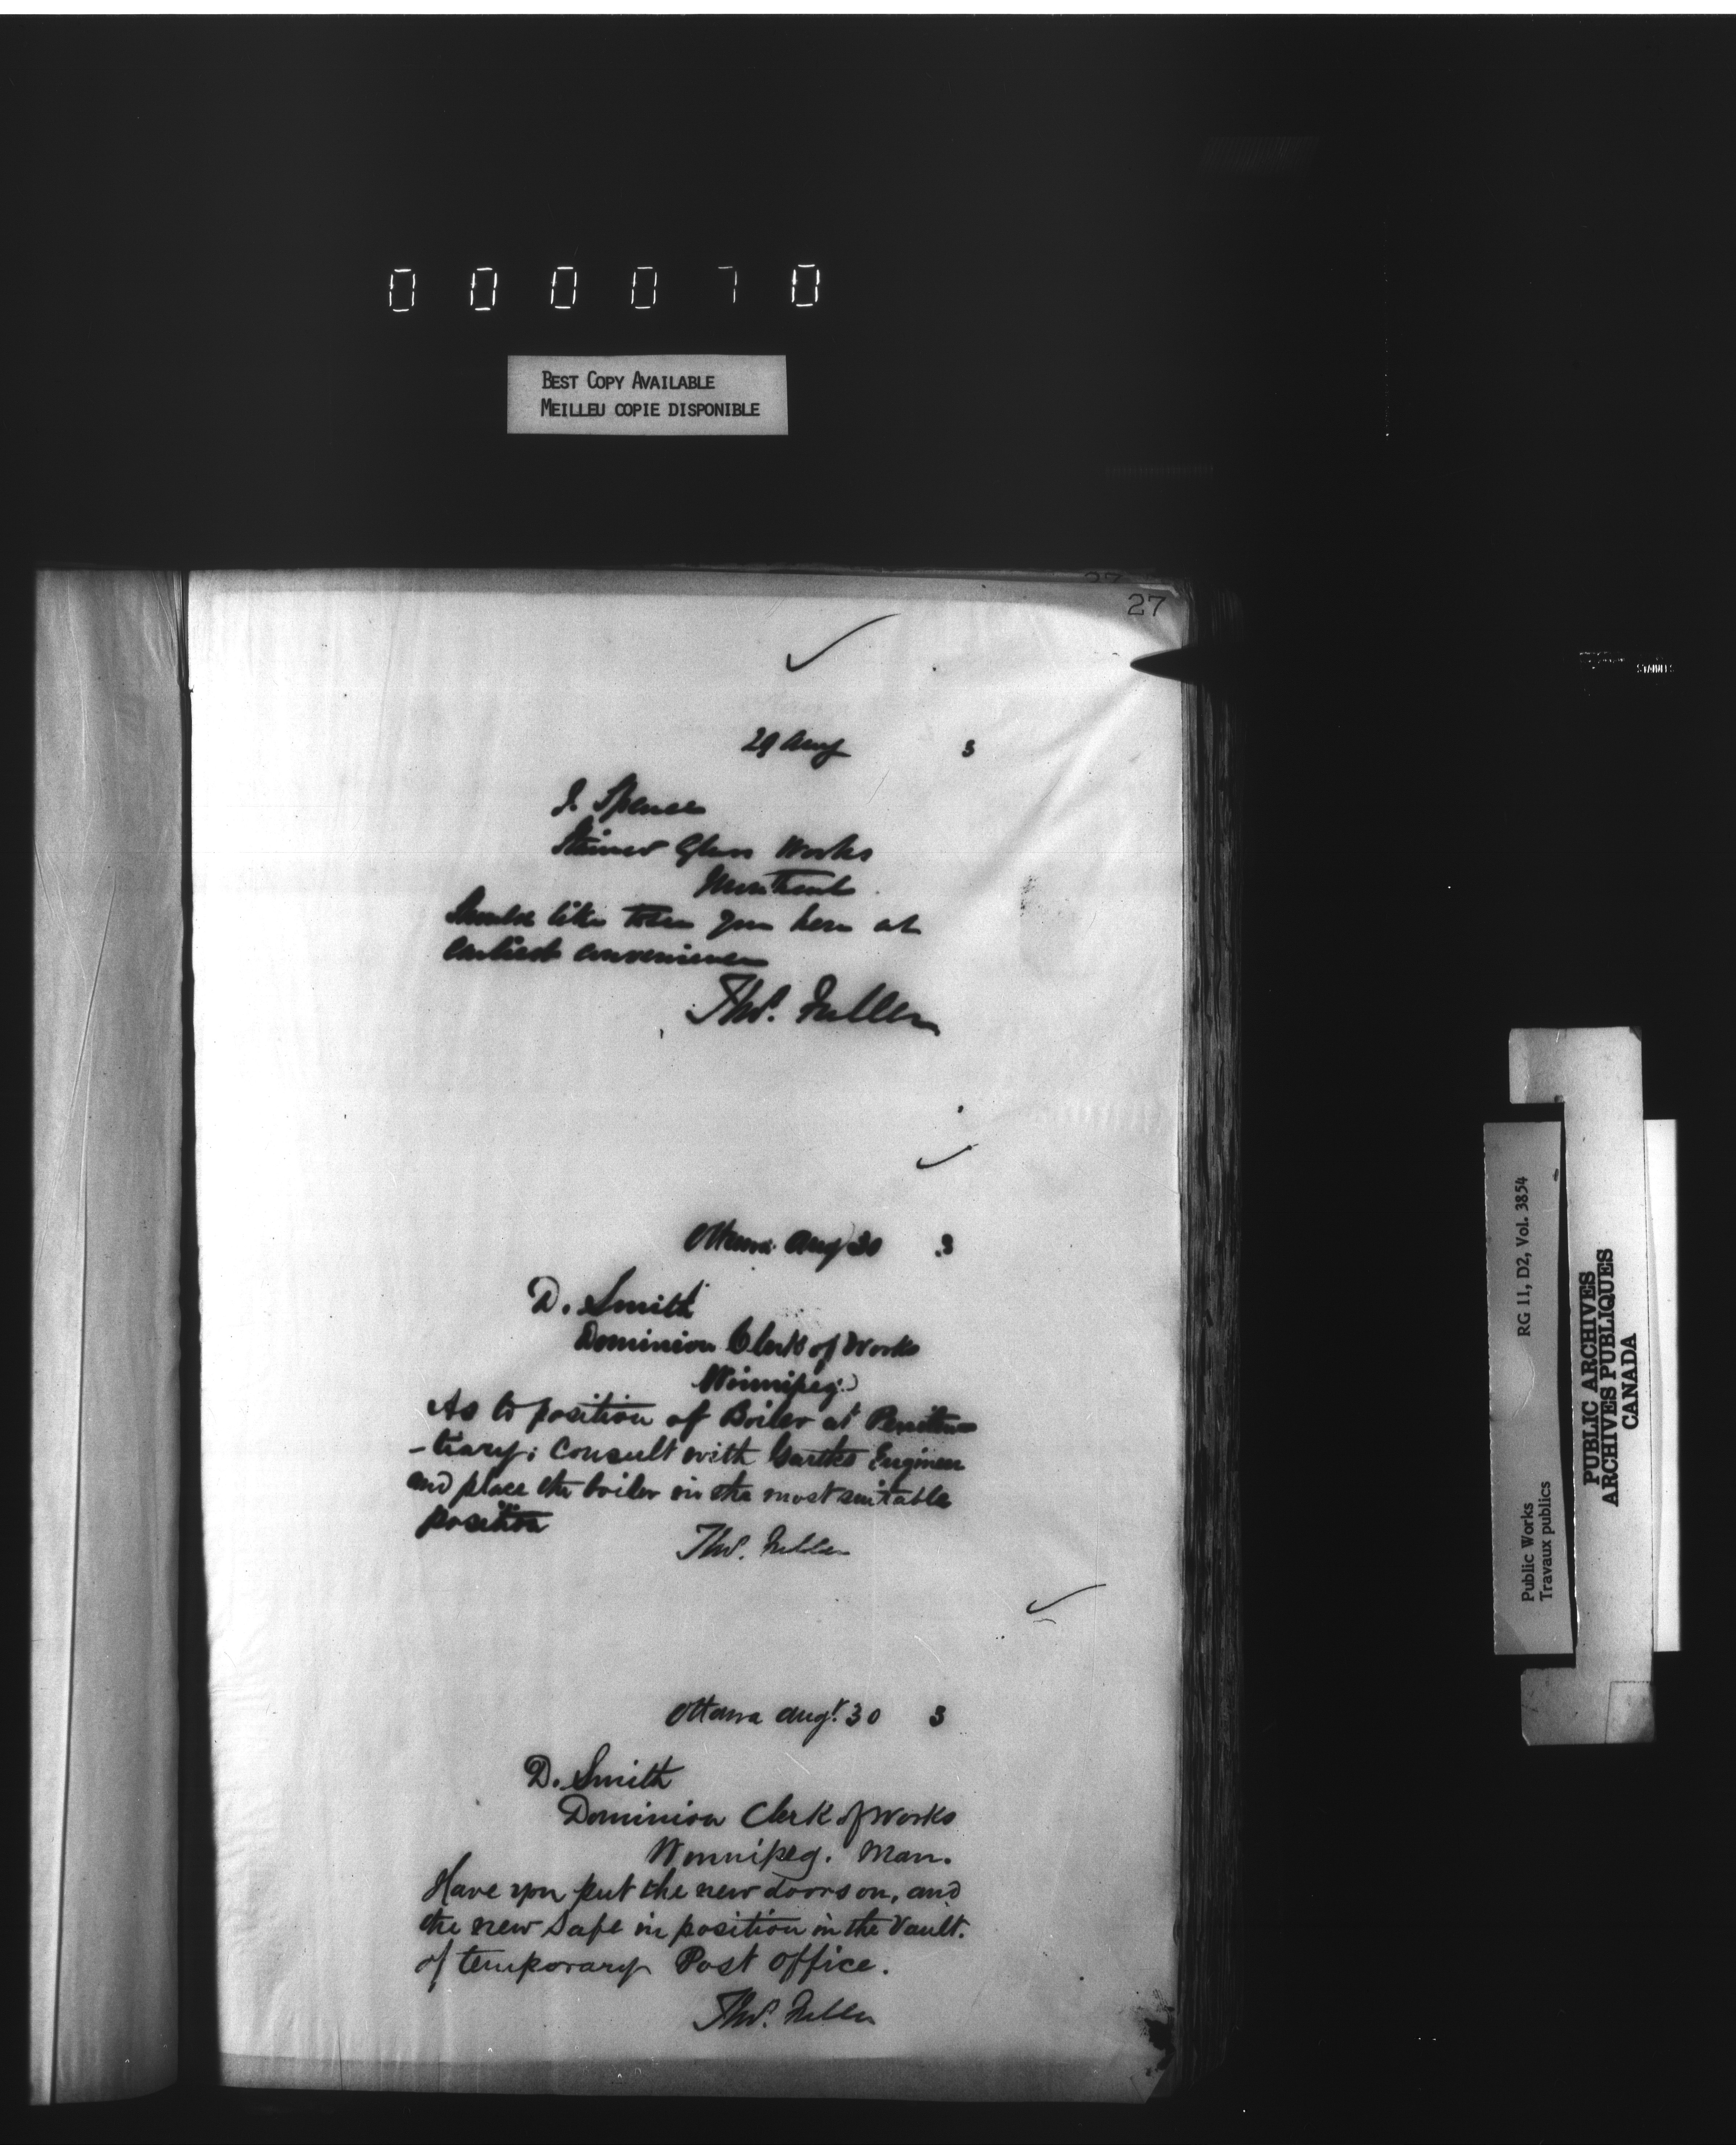 000070
BEST COPY AVAILABLE
MEILLEU COPIE DISPONIBLE
27
29 Aug 3
J. Spence
Stained Glass Works
Montreal
Should like to see you here at
earliest convenience
Thos. Fuller
Ottawa Aug 30 3
D. Smith
Dominion Clerk of Works
Winnipeg
As to position of Boiler at Peniten
-tiary; Consult with Garths Engineer
and place the boiler in the most suitable
position
Thos. Fuller
Ottawa Augt. 30 3
D. Smith
Dominion Clerk of Works
Winnipeg. Man.
Have you put the new doors on, and
the new Safe in position in the Vault.
of temporary Post Office.
Thos. Fuller
Public Works
Travaux publics
RG 11, D2, Vol. 3854
PUBLIC ARCHIVES
ARCHIVES PUBLIQUES
CANADA